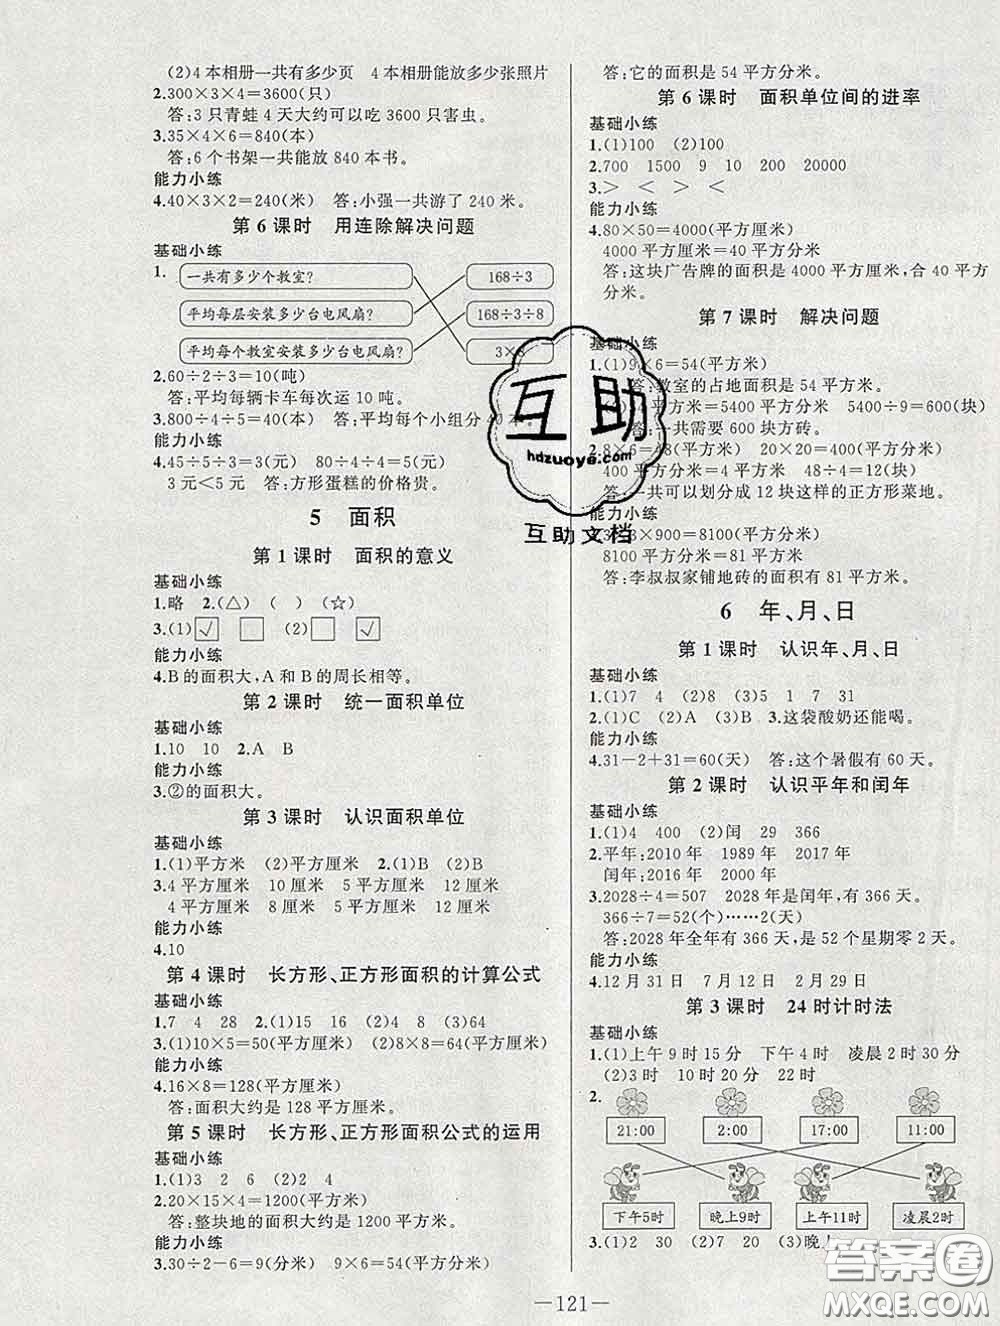 (2)4本相册一共有多少页 4本相册能放多少张照片
2.300×3×4=3600(只)
答:3只青蛙4天大约可以吃3600只害虫。
3.35×4×6=840(本)
答:6个书架一共能放840本书。
能力小练
4.40×3×2=240(米) 答:小强一共游了240米。
第6课时 用连除解决问题
基础小练
1. 一共有多少个教室? 168÷3
平均每层安装多少台电风扇? 168÷3÷8
平均每个教室安装多少台电风扇? 3×8
2.60÷2÷3=10(吨)
答:平均每辆卡车每次运10吨。
3.800÷4÷5=40(本) 答:平均每个小组分40本。
能力小练
4.45÷5÷3=3(元) 80÷4÷4=5(元)
3元<5元 答:方形蛋糕的价格贵。
5 面积
第1课时 面积的意义
基础小练
1.略 2.(△) ( ) (☆)
3.(1)√ □ (2)□ √
能力小练
4.B的面积大,A和B的周长相等。
第2课时 统一面积单位
基础小练
1.10 10 2.A B
能力小练
3.②的面积大。
第3课时 认识面积单位
基础小练
1.(1)平方米 (2)平方厘米 2.(1)B (2)B
3.4平方厘米 10厘米 5平方厘米 12厘米
4平方厘米 8厘米 5平方厘米 12厘米
能力小练
4.10
第4课时 长方形、正方形面积的计算公式
基础小练
1.7 4 28 2.(1)15 16 (2)4 8 (3)64
3.(1)10×5=50(平方厘米) (2)8×8=64(平方厘米)
能力小练
4.16×8=128(平方厘米)
答:面积大约是128平方厘米。
第5课时 长方形、正方形面积公式的运用
基础小练
1.(1)3 2 6 (2)2 4
2.20×15×4=1200(平方米)
答:整块地的面积大约是1200平方米。
能力小练
3.30÷2-6=9(分米) 9×6=54(平方分米)
答:它的面积是54平方分米。
第6课时 面积单位间的进率
基础小练
1.(1)100 (2)100
2.700 1500 9 10 200 20000
3.> < > <
能力小练
4.80×50=4000(平方厘米)
4000平方厘米=40平方分米
答:这块广告牌的面积是4000平方厘米,合40平方分米。
第7课时 解决问题
基础小练
1.(1)9×6=54(平方米)
答:教室的占地面积是54平方米。
平方米=5400平方分米 5400÷9=600(块)
答:一共需要600块方砖。
2.8×6=48(平方米) 20×20=400(平方分米)
400平方分米=4平方米 48÷4=12(块)
答:一共可以划分成12块这样的正方形菜地。
能力小练
3.3×3×900=8100(平方分米)
8100平方分米=81平方米
答:李叔叔家铺地砖的面积有81平方米。
6 年、月、日
第1课时 认识年、月、日
基础小练
1.(1)7 4 (2)8 (3)5 1 7 31
2.(1)C (2)A (3)B 3.这袋酸奶还能喝。
能力小练
4.31-2+31=60(天) 答:这个暑假有60天。
第2课时 认识平年和闰年
基础小练
1.(1)4 400 (2)闰 29 366
2.平年:2010年 1989年 2017年
闰年:2016年 2000年
3.2028÷4=507 2028年是闰年,有366天。
366÷7=52(个)……2(天)
答:2028年全年有366天,是52个星期零2天。
能力小练
4.12月31日 7月12日 2月29日
第3课时 24时计时法
基础小练
1.(1)上午9时15分 下午4时 凌晨2时30分
(2)3时 10时20分 22时
2. 21:00 2:00 17:00 11:00
下午5时 晚上9时 上午11时 凌晨2时
3.(1)2 30 (2)7 20 (3)晚上
互助
hdzuoye.com
互助文档
答案圈
MXQE.COM
—121—